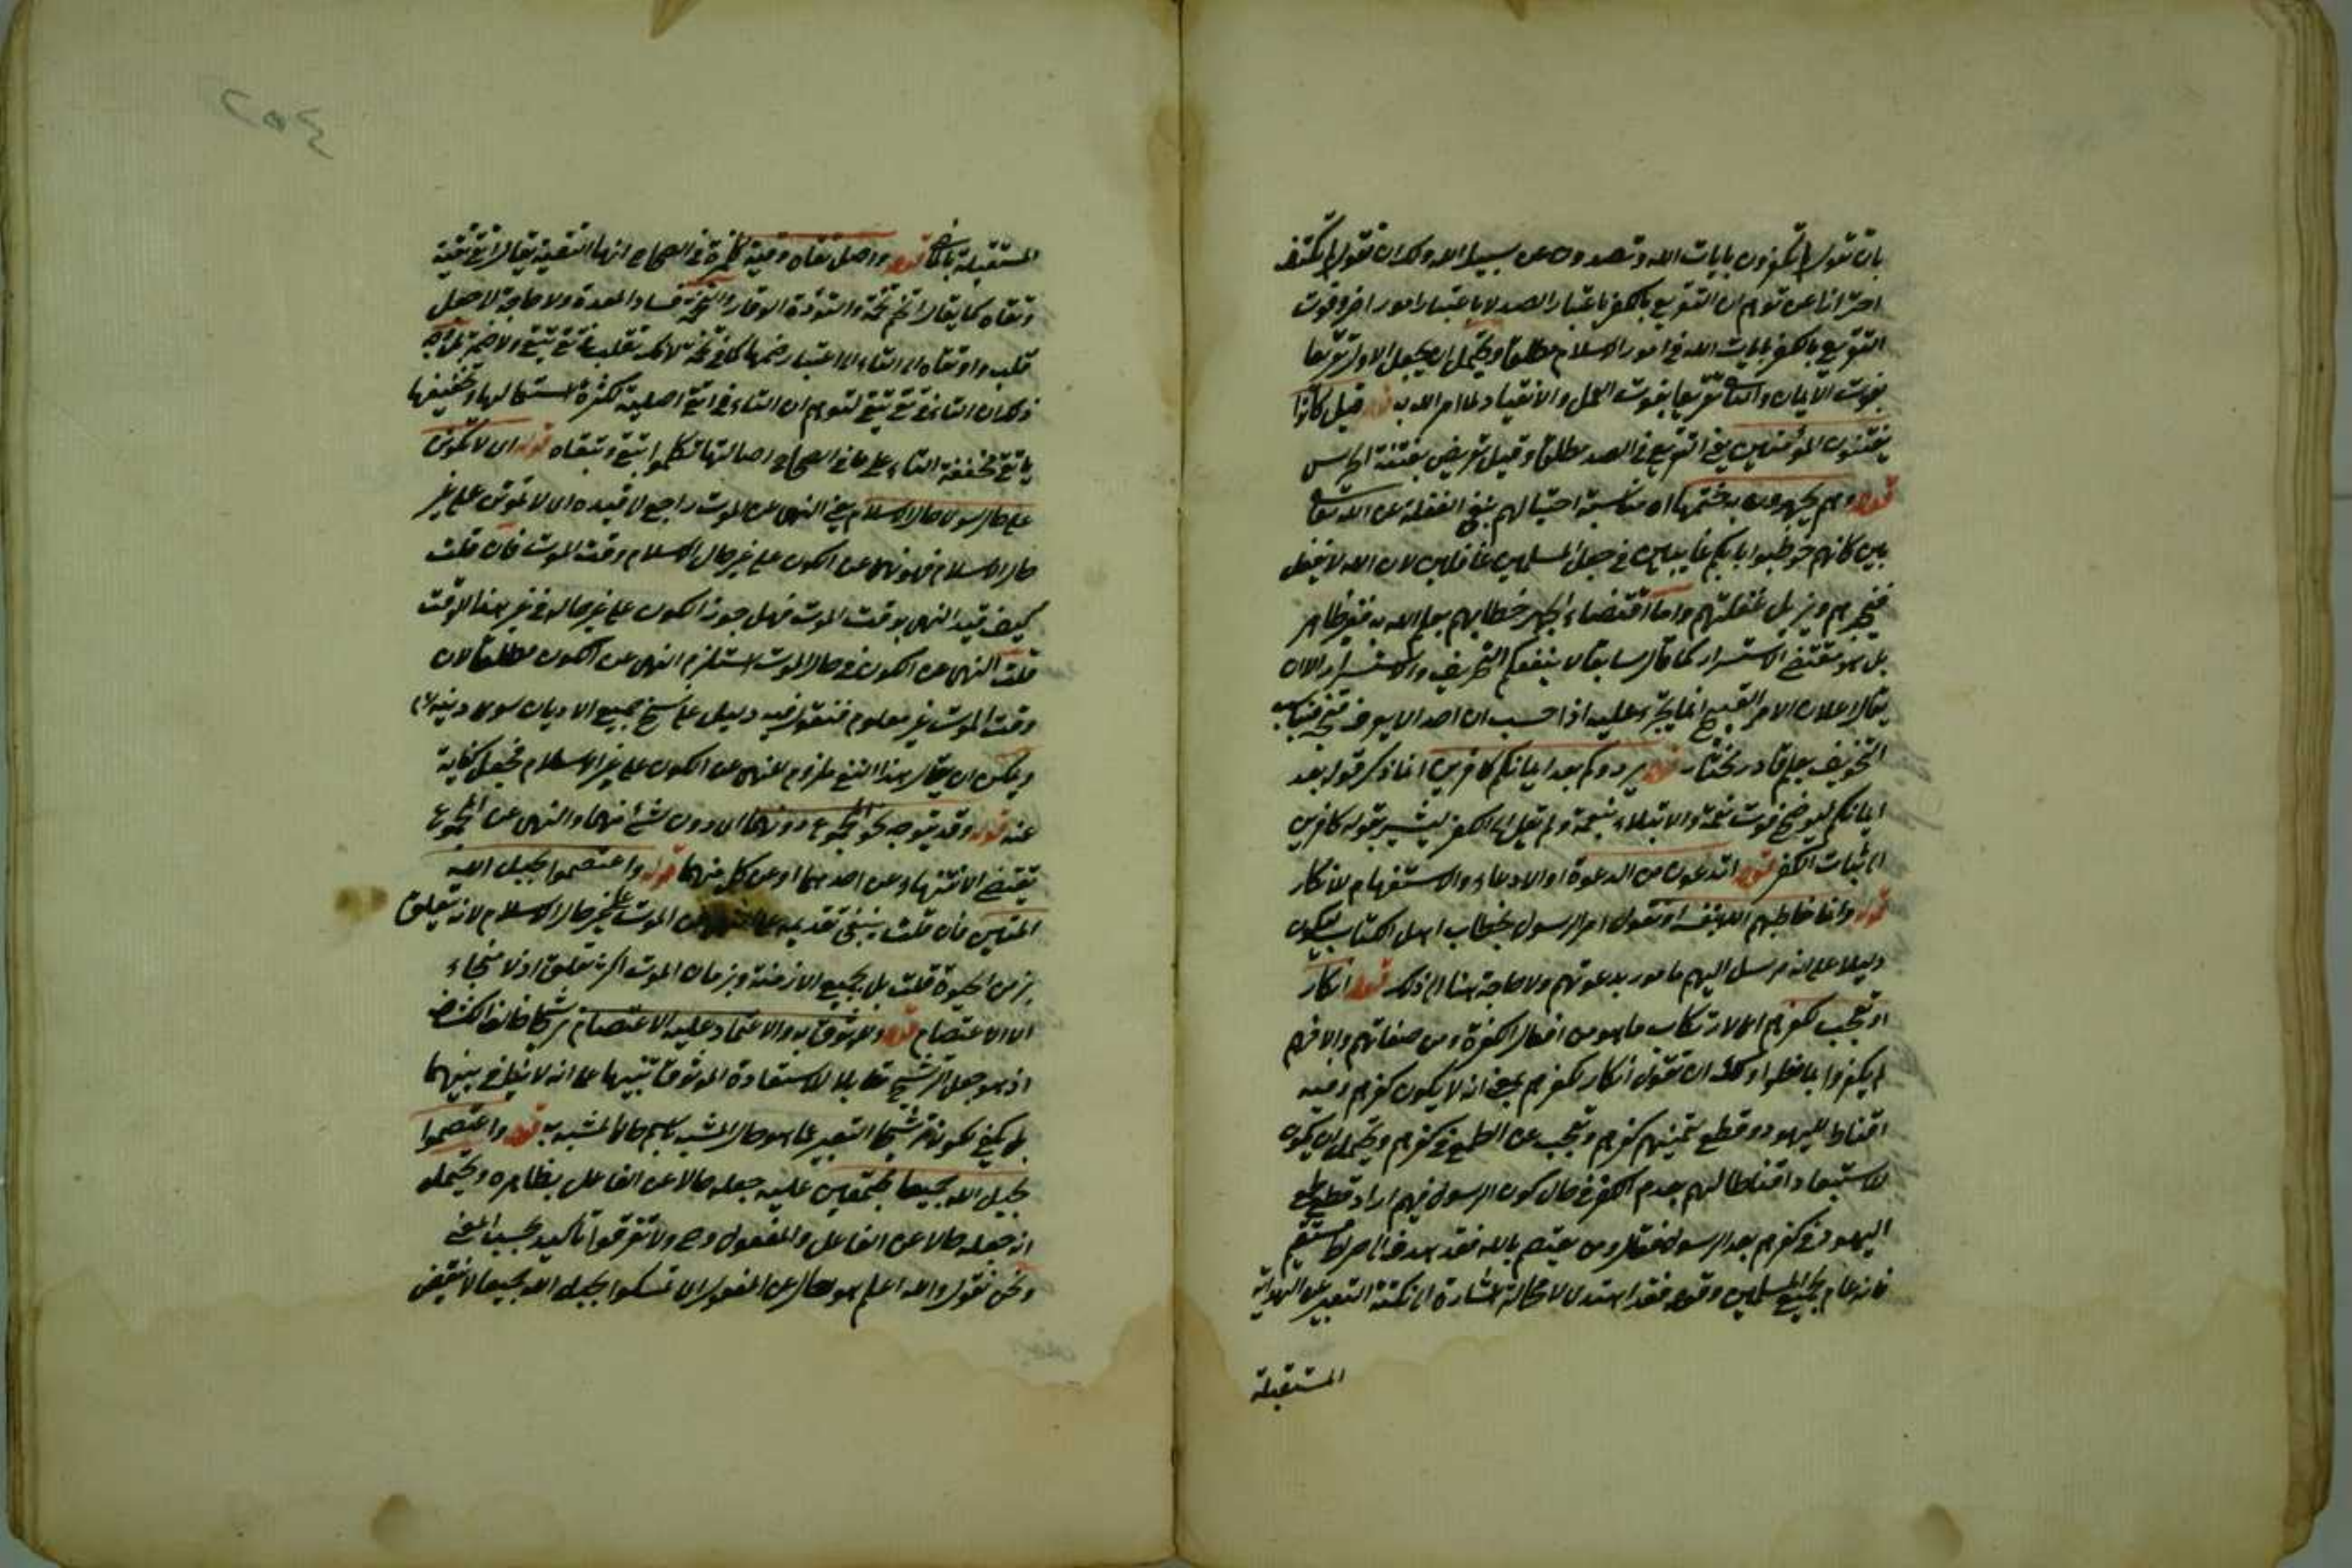 بان تقول لم تكفرون بايات الله وتصدون عن سبيل الله ولك ان تقول لم يكتف
احترازا عن توهم ان التقريع بالكفر باعتبار الصد لا باعتبار امور اخر وفوت
التقريع بالكفر بايات الله في امور الاسلام مطلقا ويحتمل ان يجعل الاول تقريعا
بفوت الايمان والثاني تقريعا بفوت العمل والانقياد لما امر الله به قوله قيل كانوا
يفتنون المؤمنين يعني التقريع في الصد مطلقا وقيل تعريض بفتنة
قوله وهم يجهرون به ختمها اه مناسبة احتيالهم بنفي الغفلة عن الله تعالى
بين كانهم خوطبوا في جعل المسلمين غافلين لان الله لا يغفل
فيخبرهم ويزيل غفلتهم واما اقتضاء الجهر خطابهم بعلم الله به فغير ظاهر
بل هو مقتضى الاسرار كما قال سابقا لا ينفعكم التحريف والاستسرار الا ان
يقال اعلان الامر القبيح انما يجترء عليه اذا حسب ان احدا لا يعرف قبحه فيناسب
التخويف بعلم قادر مختار قوله يردوكم بعد ايمانكم كافرين انما ذكر قوله بعد
ايمانكم ليوضح فوت نعمة والابتلاء بنقمة ولم يقل الى الكفر ليشير بقوله كافرين
الى ثبات الكفر قوله اتدعون من الدعوة او الادعاء والاستفهام للانكار
قوله وانما خاطبهم الله بنفسه او نقول امر الرسول بخطاب اهل الكتاب ليكون
دليلا على انه مرسل اليهم مامور بدعوتهم ولا حاجة هنا الى ذلك قوله انكار
او تعجب كفرهم اي لارتكاب ما هو من افعال الكفرة ومن صفاتهم والا فهم
لم يكفروا بما فعلوا ولك ان تقول انكار لكفرهم بمعنى انه لا يكون كفرهم وفيه
اقناط لليهود وقطع تمنيهم كفرهم وتعجب عن الطمع في كفرهم ويحتمل ان يكون
لاستبعاد اقناطا لهم بعدم الكفر في حال كون الرسول فيهم اراد قطع طمع
اليهود في كفرهم بعد الرسول فقال ومن يعتصم بالله فقد هدي الى صراط مستقيم
فانه عام لجميع المسلمين وقوله فقد اهتدى لا محالة اشارة الى نكتة التعبير عن الهداية
المستقبلة
٢٥٤
المستقبلة بالماضي قوله واصل تقاة وقية في الصحاح انها التقية يقال اتقى تقية
وتقاة كما يقال اتخم تخمة والتؤدة الوقار والتخمة فساد المعدة ولا حاجة لاجل
قلب واو تقاة الى التاء الى اعتبار ضمها كما في تخمة لانه تقلب في تقى يتقي
ذلك ان التاء في تقى يتقي لتوهم ان التاء في اتقى اصلية لكثرة استعمالها وتخفيفها
ياتقى مخففة التاء على ما في الصحاح اصالتها تكلموا بتقى وتقاة قوله اي لا تكونن
على حال سوى حال الاسلام يعني النهي عن الموت راجع لا قيده اي لا تموتن على غير
حال الاسلام فهو نهي عن الكون على غير حال الاسلام وقت الموت فان قلت
كيف قيد النهي بوقت الموت فهل جوز الكون على غير حاله في غير هذا الوقت
قلت النهي عن الكون في حال الموت استلزم النهي عن الكون مطلقا لان
وقت الموت غير معلوم فنقول فيه دليل على نسخ جميع الاديان سوى دينه
ويمكن ان يقال هذا النفي ملزوم للنهي عن الكون على غير الاسلام فجعل كناية
عنه قوله وقد يتوجه نحو المجموع دونهما اي دون شيء منهما والنهي عن المجموع
يقتضي الانتهاء عن احدهما او عن كل منهما قوله واعتصموا بحبل الله
المتين فان قلت ينبغي تقديمه على النهي عن الموت على غير حال الاسلام لانه يتعلق
بزمن الحيوة قلت بل بجميع الازمنة وبزمان الموت اكثر تعلق اذ لا منجاء
الا الاعتصام قوله وللوثوق به والاعتماد عليه الاعتصام ترشيحا خالف الكشاف
اذ هو جعل الترشيح مقابلا للاستعارة الموثوق تنبيها على انه لا تنافي بينهما
بل يكفي لكونه ترشيحا التعبير عما هو حال المشبه باسم حال المشبه به قوله واعتصموا
بحبل الله جميعا مجتمعين عليه جعله حالا عن الفاعل بظاهره ويحتمل
انه جعله حالا عن الفاعل والمفعول وح ولا تفرقوا تاكيد بحسب المعنى
ونحن نقول والله اعلم هو حال عن المفعول اي تمسكوا بحبل الله جميعا لا ينقض